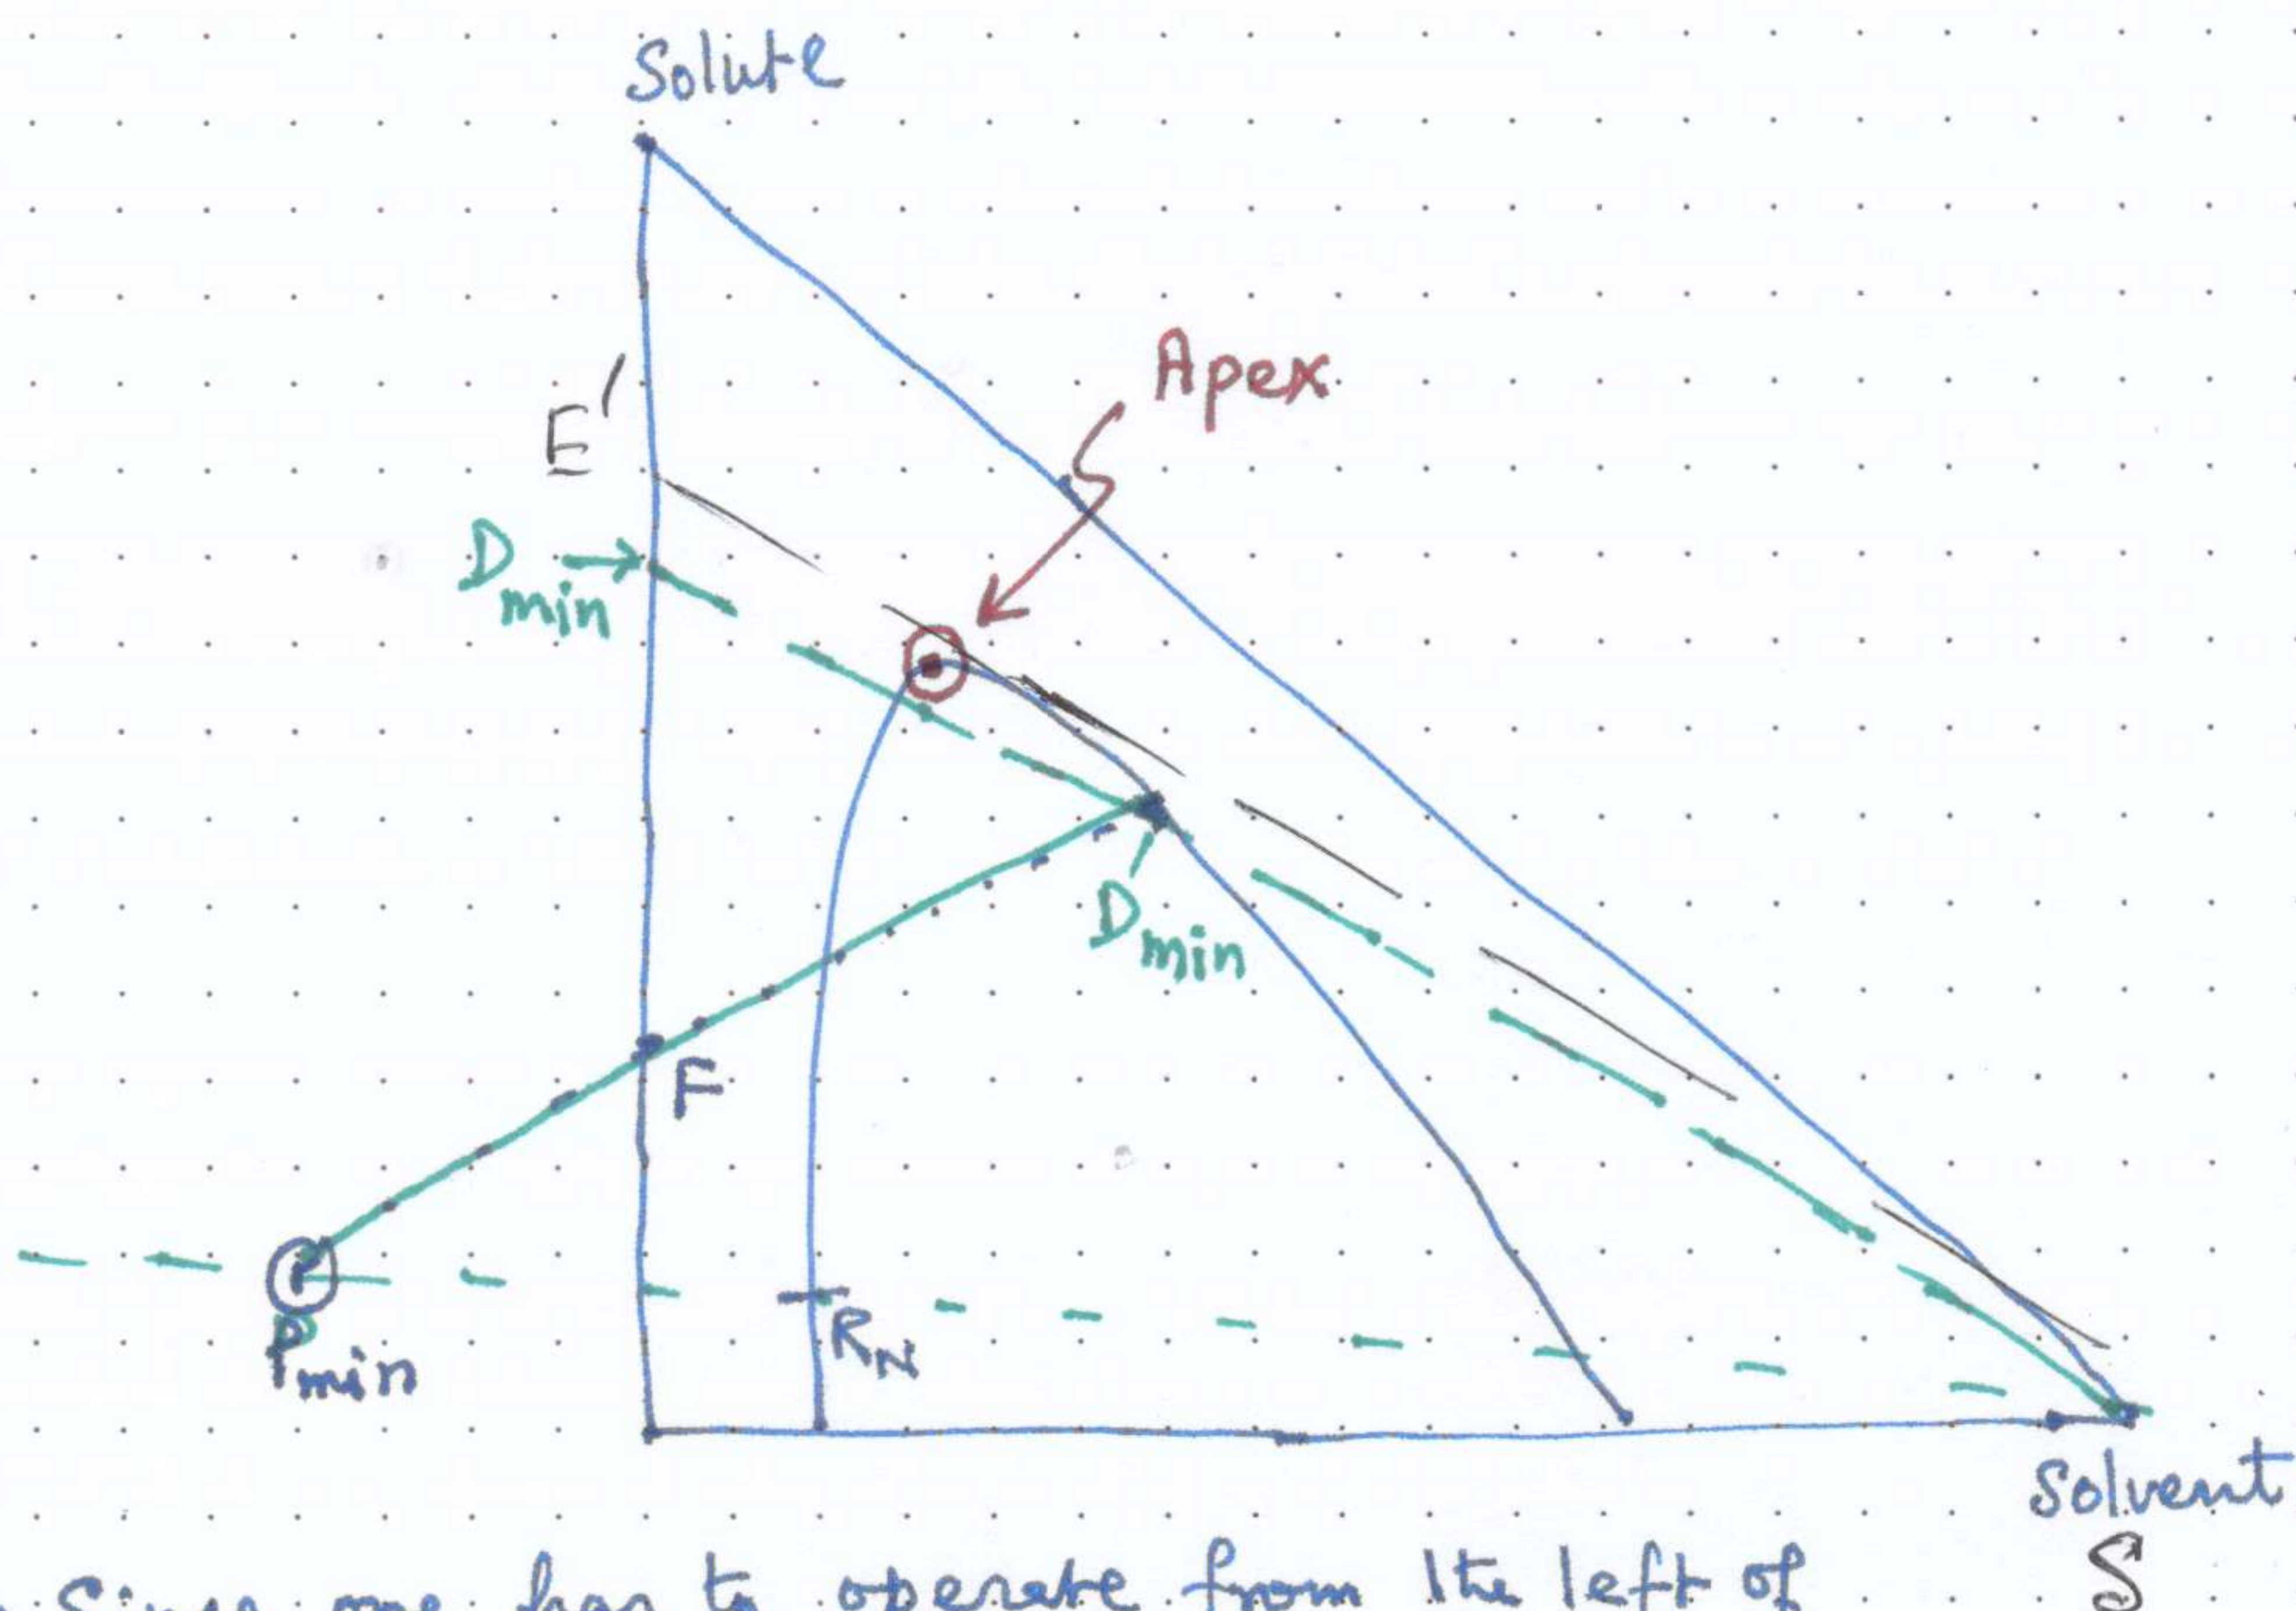 Solute
Apex
E'
D min
D min
F
R N
P min
Solvent
S
Since one has to operate from the left of